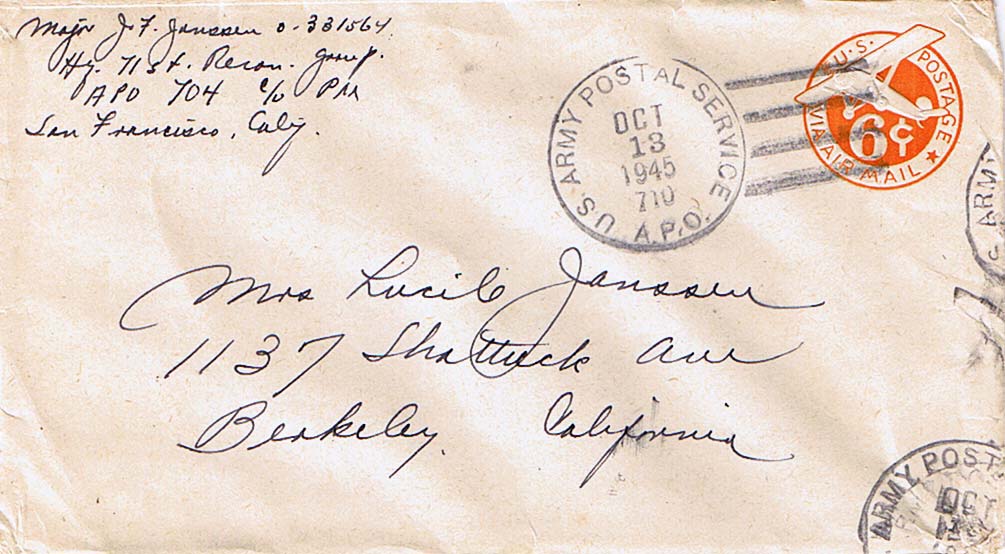 Major J. F. Janssen O-331564
Hq. 71st. Recon. Group.
APO 704 c/o PM
San Francisco, Calif.
U.S. ARMY POSTAL SERVICE
OCT
13
1945
710
A.P.O.
U.S. POSTAGE
6¢
VIA AIR MAIL
ARMY
Mrs Lucile Janssen
1137 Shattuck Ave
Berkeley, California
ARMY POST
OCT
13